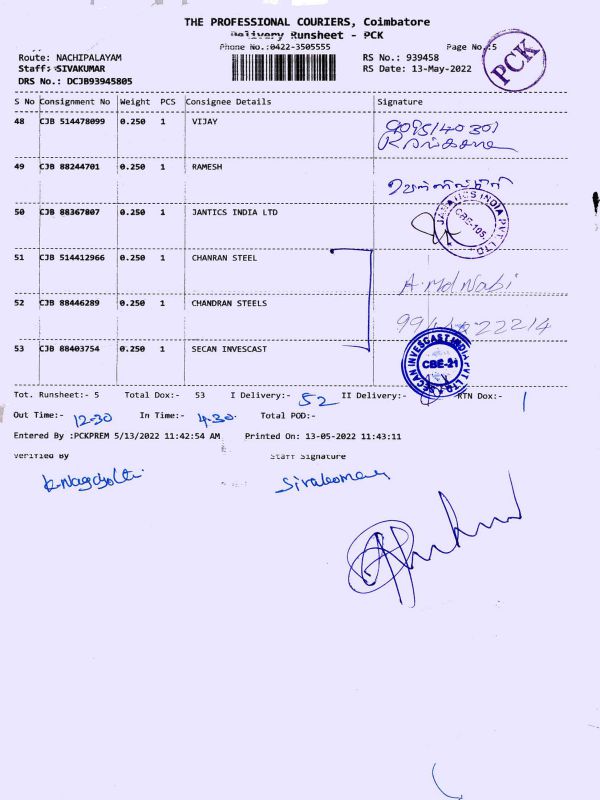 THE PROFESSIONAL COURIERS, Coimbatore
Delivery Runsheet - PCK
Phone No.:0422-3505555
Page No.:5
PCK
Route: NACHIPALAYAM
RS No.: 939458
Staff: SIVAKUMAR
RS Date: 13-May-2022
DRS No.: DCJB93945805
S No Consignment No Weight PCS Consignee Details Signature
48 CJB 514478099 0.250 1 VIJAY
49 CJB 88244701 0.250 1 RAMESH
50 CJB 88367807 0.250 1 JANTICS INDIA LTD
CBE-105.
51 CJB 514412966 0.250 1 CHANRAN STEEL
A. Md Nabi
52 CJB 88446289 0.250 1 CHANDRAN STEELS
53 CJB 88403754 0.250 1 SECAN INVESCAST
SECAN INVESCAST INDIA PVT LTD
CBE-21
Tot. Runsheet:- 5 Total Dox:- 53 I Delivery:- 52 II Delivery:- RTN Dox:- 1
Out Time:- 12.30 In Time:- 4.30. Total POD:-
Entered By :PCKPREM 5/13/2022 11:42:54 AM Printed On: 13-05-2022 11:43:11
Verified By Staff Signature